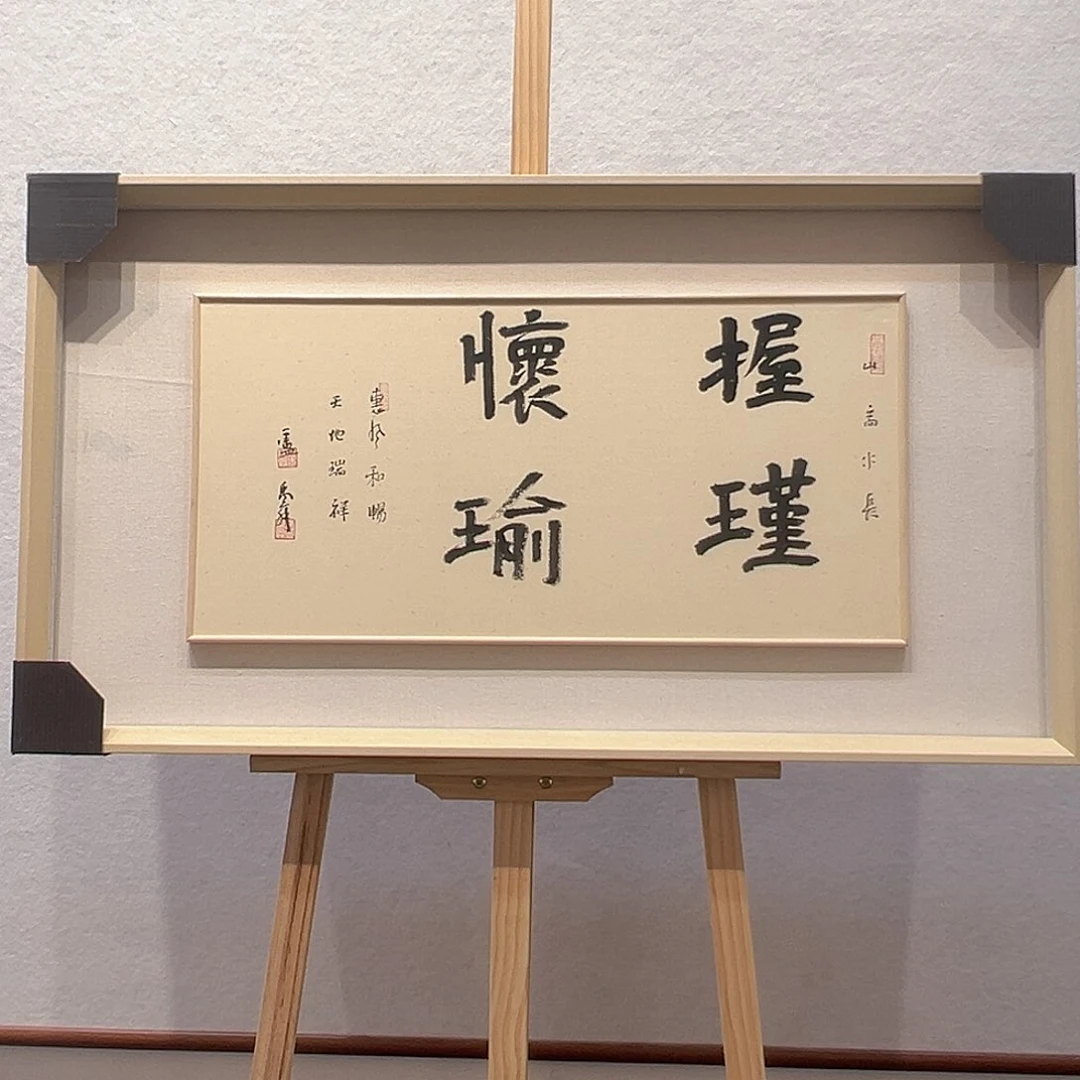 山高水長
握瑾
懷瑜
惠風和暢
天地瑞祥